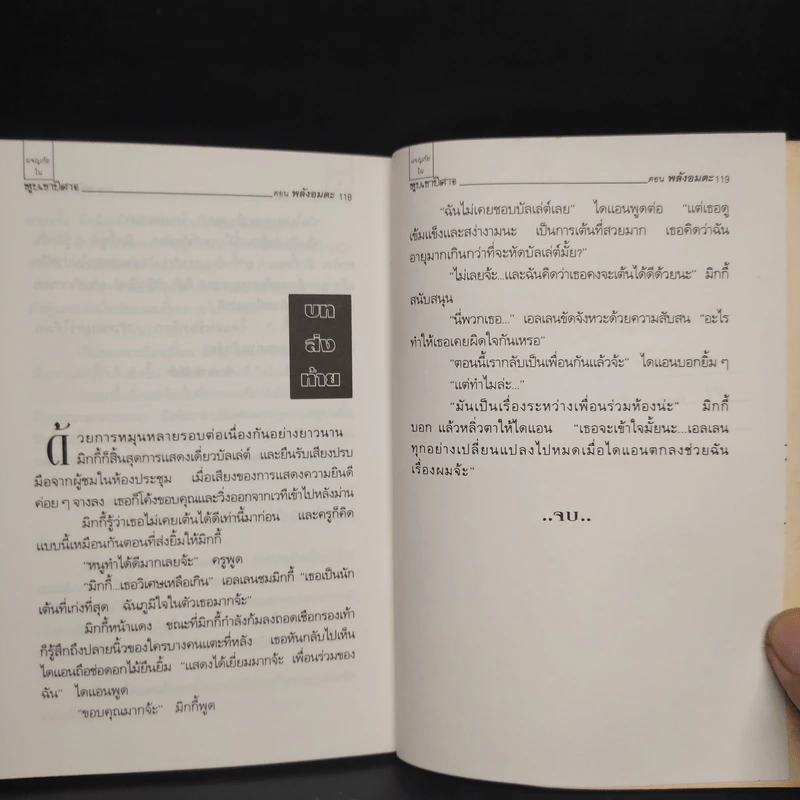 ผจญภัย
ใน
หุบเขาปีศาจ
ตอน พลังอมตะ 118
บท
ส่ง
ท้าย
ด้วยการหมุนหลายรอบต่อเนื่องกันอย่างยาวนาน
มิกกี้ก็สิ้นสุดการแสดงเดี่ยวบัลเล่ต์ และยืนรับเสียงปรบ
มือจากผู้ชมในห้องประชุม เมื่อเสียงของการแสดงความยินดี
ค่อย ๆ จางลง เธอก็โค้งขอบคุณและวิ่งออกจากเวทีเข้าไปหลังม่าน
มิกกี้รู้ว่าเธอไม่เคยเต้นได้ดีเท่านี้มาก่อน และครูก็คิด
แบบนี้เหมือนกันตอนที่ส่งยิ้มให้มิกกี้
"หนูทำได้ดีมากเลยจ้ะ" ครูพูด
"มิกกี้...เธอวิเศษเหลือเกิน" เอลเลนชมมิกกี้ "เธอเป็นนัก
เต้นที่เก่งที่สุด ฉันภูมิใจในตัวเธอมากจ้ะ"
มิกกี้หน้าแดง ขณะที่มิกกี้กำลังก้มลงถอดเชือกรองเท้า
ก็รู้สึกถึงปลายนิ้วของใครบางคนแตะที่หลัง เธอหันกลับไปเห็น
ไดแอนถือช่อดอกไม้ยืนยิ้ม "แสดงได้เยี่ยมมากจ้ะ เพื่อนร่วมของ
ฉัน" ไดแอนพูด
"ขอบคุณมากจ้ะ" มิกกี้พูด
ผจญภัย
ใน
หุบเขาปีศาจ
ตอน พลังอมตะ 119
"ฉันไม่เคยชอบบัลเล่ต์เลย" ไดแอนพูดต่อ "แต่เธอดู
เข้มแข็งและสง่างามนะ เป็นการเต้นที่สวยมาก เธอคิดว่าฉัน
อายุมากเกินกว่าที่จะหัดบัลเล่ต์มั้ย?"
"ไม่เลยจ้ะ...และฉันคิดว่าเธอคงจะเต้นได้ดีด้วยนะ" มิกกี้
สนับสนุน
"นี่พวกเธอ..." เอลเลนขัดจังหวะด้วยความสับสน "อะไร
ทำให้เธอเคยผิดใจกันเหรอ"
"ตอนนี้เรากลับเป็นเพื่อนกันแล้วจ้ะ" ไดแอนบอกยิ้ม ๆ
"แต่ทำไมล่ะ..."
"มันเป็นเรื่องระหว่างเพื่อนร่วมห้องน่ะ" มิกกี้
บอก แล้วหลิ่วตาให้ไดแอน "เธอจะเข้าใจมั้ยนะ...เอลเลน
ทุกอย่างเปลี่ยนแปลงไปหมดเมื่อไดแอนตกลงช่วยฉัน
เรื่องผมจ้ะ"
..จบ..